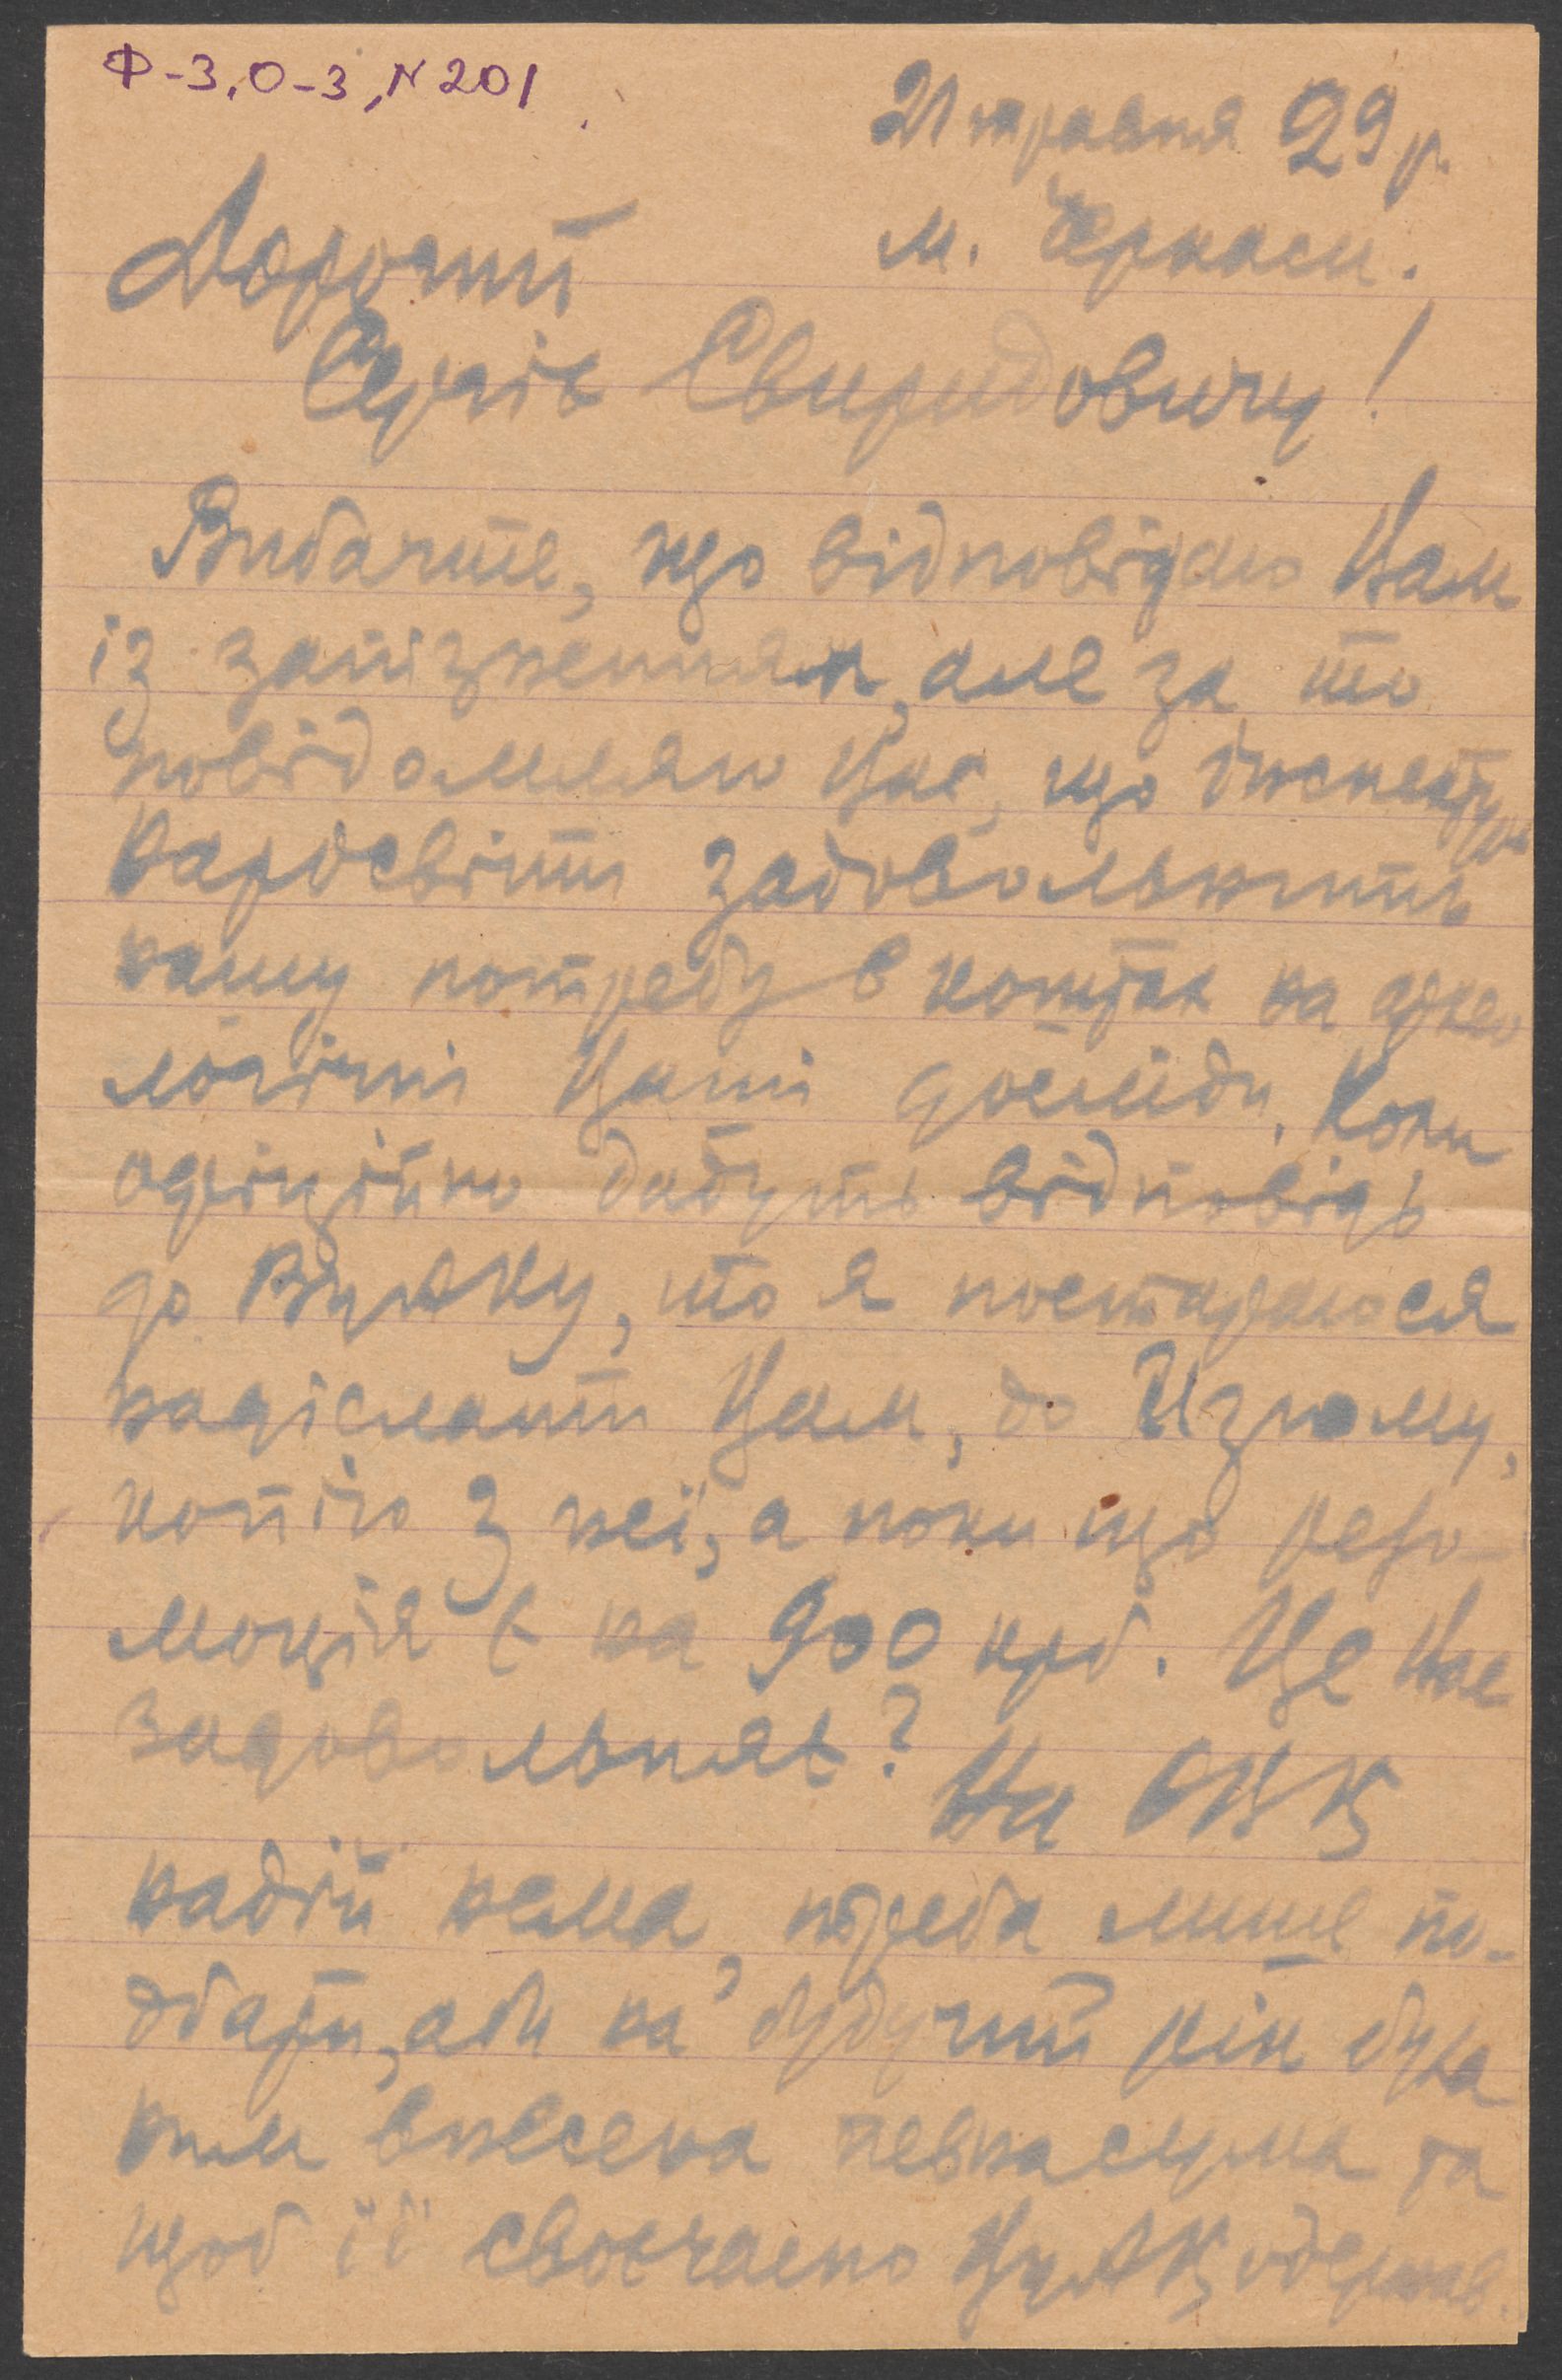 Ф-3, О-3, N 201
21 травня 29 р.
м. Черкаси.
Дорогий
Сергіє Свиридовичу!
Вибачте, що відповідаю Вам
із запізненням, але за то
повідомляю Вас, що Інспектура
Наросвіти задовольнить
нашу потребу в коштах на архео
логічні Ваші досліди. Коли
офіційно дадуть відповідь
до Вуаку, то я постараюся
надіслати Вам, до Изюму,
копію з неї, а поки що резо-
люція є на 900 крб. Це Вас
задовольняє? На ОВК
надій нема, треба лише по-
дбати, аби на будучий рік була
ними внесена певна сума та
щоб її своєчасно Вуак одержав.